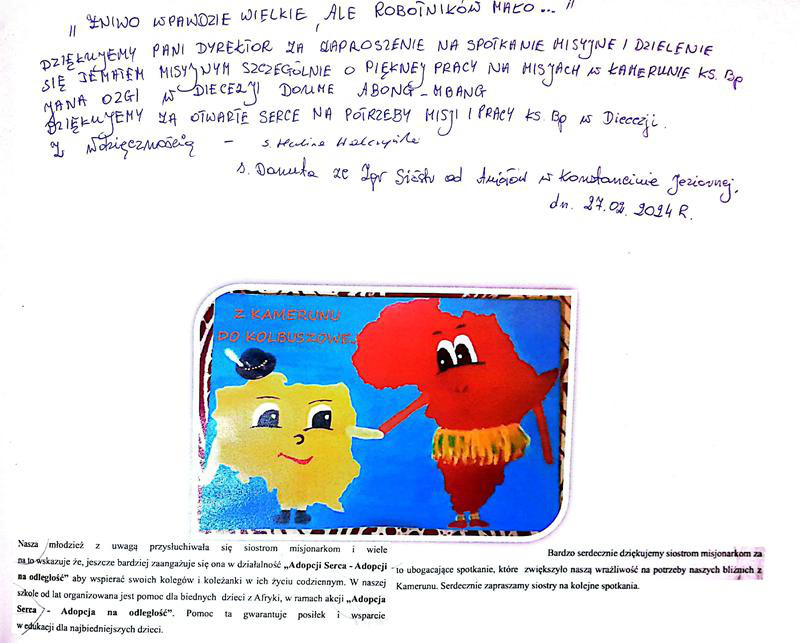 „ ŻNIWO WPAWDZIE WIELKIE, ALE ROBOTNIKÓW MAŁO... "
DZIĘKUJEMY PANI DYREKTOR ZA ZAPROSZENIE NA SPOTKANIE MISYJNE I DZIELENIE
SIĘ TEMATEM MISYJNYM SZCZEGÓLNIE O PIĘKNEJ PRACY NA MISJACH W KAMERUNIE KS. Bp
JANA OZGI W DIECEZJI DOUME ABONG-MBANG
DZIĘKUJEMY ZA OTWARTE SERCE NA POTRZEBY MISJI I PRACY KS. Bp w Diecezji.
Z wdzięcznością – s. Halina
s. Danuta ze Zgr Sióstr od Aniołów w Konstancinie Jeziornej.
dn. 27.02.2024 R.
Z KAMERUNU
DO KOLBUSZOWEJ
Nasza młodzież z uwagą przysłuchiwała się siostrom misjonarkom i wiele
na to wskazuje że, jeszcze bardziej zaangażuje się ona w działalność „Adopcji Serca - Adopcji
na odległość" aby wspierać swoich kolegów i koleżanki w ich życiu codziennym. W naszej
szkole od lat organizowana jest pomoc dla biednych dzieci z Afryki, w ramach akcji „Adopcja
Serca - Adopcja na odległość". Pomoc ta gwarantuje posiłek i wsparcie
w edukacji dla najbiedniejszych dzieci.
Bardzo serdecznie dziękujemy siostrom misjonarkom za
to ubogacające spotkanie, które zwiększyło naszą wrażliwość na potrzeby naszych bliźnich z
Kamerunu. Serdecznie zapraszamy siostry na kolejne spotkania.